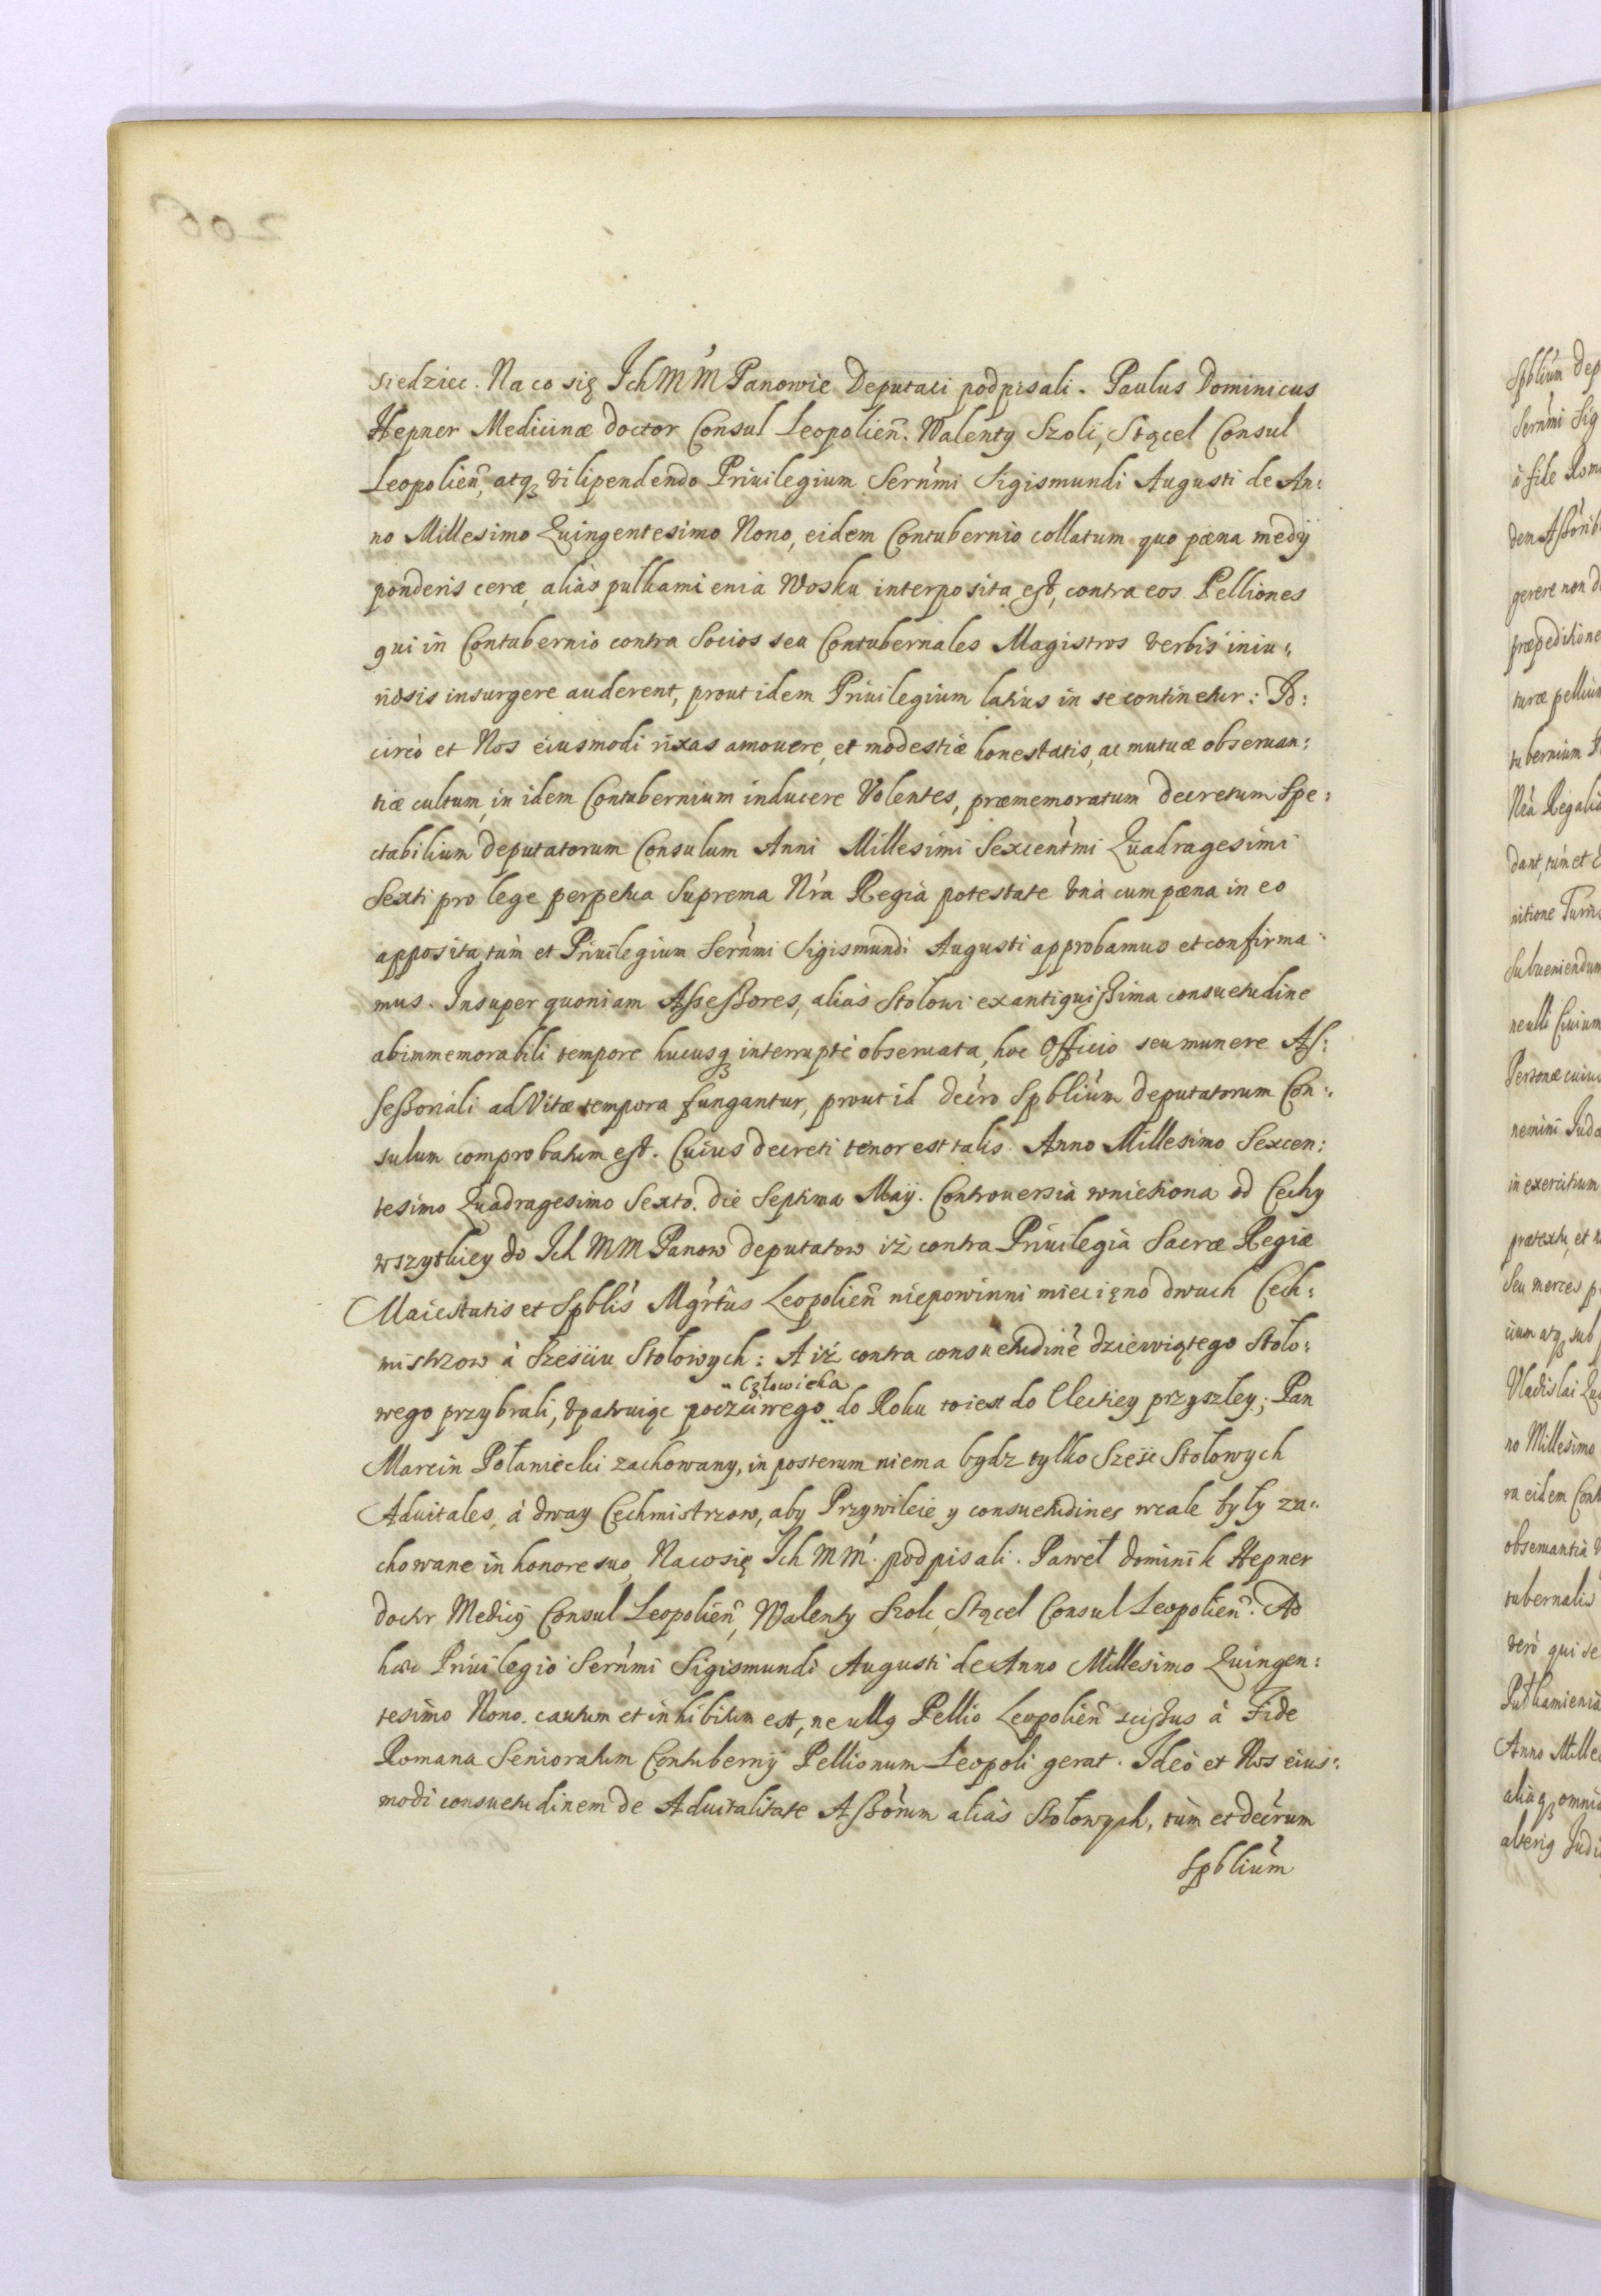 siedziec. Na co się Ich MM Panowie Deputaci podpisali. Paulus Dominicus
Hepner Medicinæ Doctor Consul Leopolien̄. Walenty Szolc, Stącel Consul
Leopolien̄, atqȝ vilipendendo Priuilegium Sern̄mi Sigismundi Augusti de An:
no Millesimo Quingentesimo Nono, eidem Contubernio collatum quo pæna medÿ
ponderis ceræ, aliàs pulkamienia Wosku interposita est, contra eos Pelliones
qui in Contubernio contra Socios seu Contubernales Magistros verbis iniu:
riosis insurgere auderent, prout idem Priuilegium latius in se continetur: Id:
circò et Nos eiusmodi rixas amouere, et modestiæ honestatis, ac mutuæ obseruan:
tiæ cultum, in idem Contubernium inducere Volentes, præmemoratum Decretum Spe:
ctabilium Deputatorum Consulum Anni Millesimi Sexcent̄mi Quadragesimi
Sexti pro lege perpetua Suprema Nr̄a Regià potestate vnà cum pæna in eo
apposita, tùm et Priuilegium Sern̄mi Sigismundi Augusti approbamus et confirma
mus. Insuper quoniam Aßeßores, aliàs Stolowi ex antiquißima consuetudine
ab immemorabili tempore hucusqȝ interruptè obseruata, hoc Officio seu munere Aſ:
seßoriali ad Vitæ tempora fungantur, prout id Decr̄o Spbliūm Deputatorum Con:
sulum comprobatum est. Cuius Decreti tenor est talis. Anno Millesimo Sexcen:
tesimo Quadragesimo Sexto. Die Septima Maÿ. Controuersia wniesiona od Cechy
wszytkiey do Ich MM Panow Deputatow iż contra Priuilegia Sacræ Regiæ
Maiestatis et Spblis̄ Mgr̄tūs Leopolien̄ niepowinni mieć ięno dwuch Cech:
mistrzow à Sześciu Stołowych: A iż contra consuetudinē dziewiątego Stoło:
człowieka
wego przybrali, vpatruiąc poczciwego do Roku to iest do Electiey przyszley; Pan
Marcin Połaniecki zachowany, in posterum niema bydz tylko Sześć Stołowych
Aduitales, à dway Cechmistrzow, aby Przywileie y consuetudines wcale były za:
chowane in honore suo, Na co się Ich MM. podpisali. Paweł Dominik Hepner
Doctr Medicÿ Consul Leopolien̄, Walenty Szolc, Stącel Consul Leopolien̄. Ad
hæc Priuilegio Sern̄mi Sigismundi Augusti de Anno Millesimo Quingen:
tesimo Nono. cautum et inhibitum est, ne ullꝯ Pellio Leopolien̄ scißus à Fide
Romana Senioratum Contubernÿ Pellionum Leopoli gerat. Ideò et Nos eius:
modi consuetudinem de Aduitalitate Aßōrum aliàs Stołowych, tùm et Decr̄um
Spbliūm